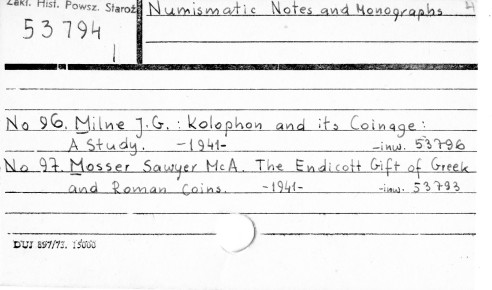 Zakł. Hist. Powsz. Staroż.
Numismatic Notes and Monographs
53794
No 96. Milne J.G.: Kolophon and its Coinage:
A Study. -1941- -inw. 53796
No 97. Mosser Sawyer McA. The Endicott Gift of Greek
and Roman Coins. -1941- -inw. 53793
DUJ 897/73. 15000